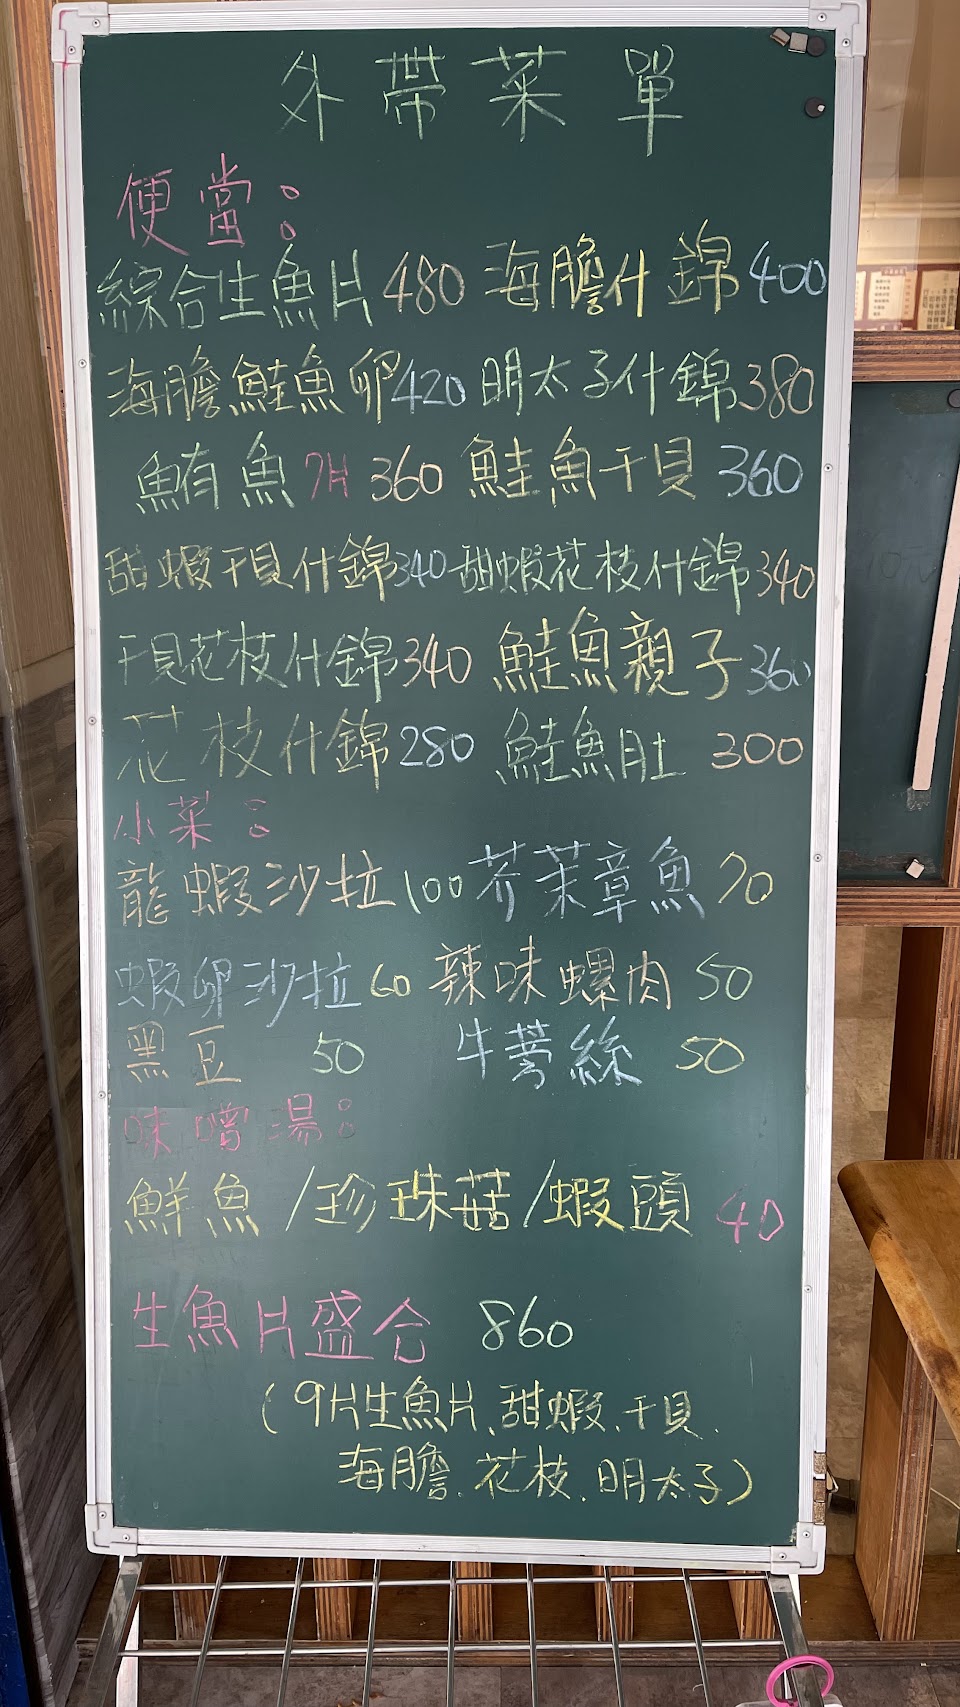 外帶菜單
便當：
綜合生魚片 480 海膽什錦 400
海膽鮭魚卵 420 明太子什錦 380
鮪魚 7片 360 鮭魚干貝 360
甜蝦干貝什錦 340 甜蝦花枝什錦 340
干貝花枝什錦 340 鮭魚親子 360
花枝什錦 280 鮭魚肚 300
小菜：
龍蝦沙拉 100 芥茉章魚 70
蝦卵沙拉 60 辣味螺肉 50
黑豆 50 牛蒡絲 50
味噌湯：
鮮魚/珍珠菇/蝦頭 40
生魚片盛合 860
(9片生魚片、甜蝦、干貝、
海膽、花枝、明太子)